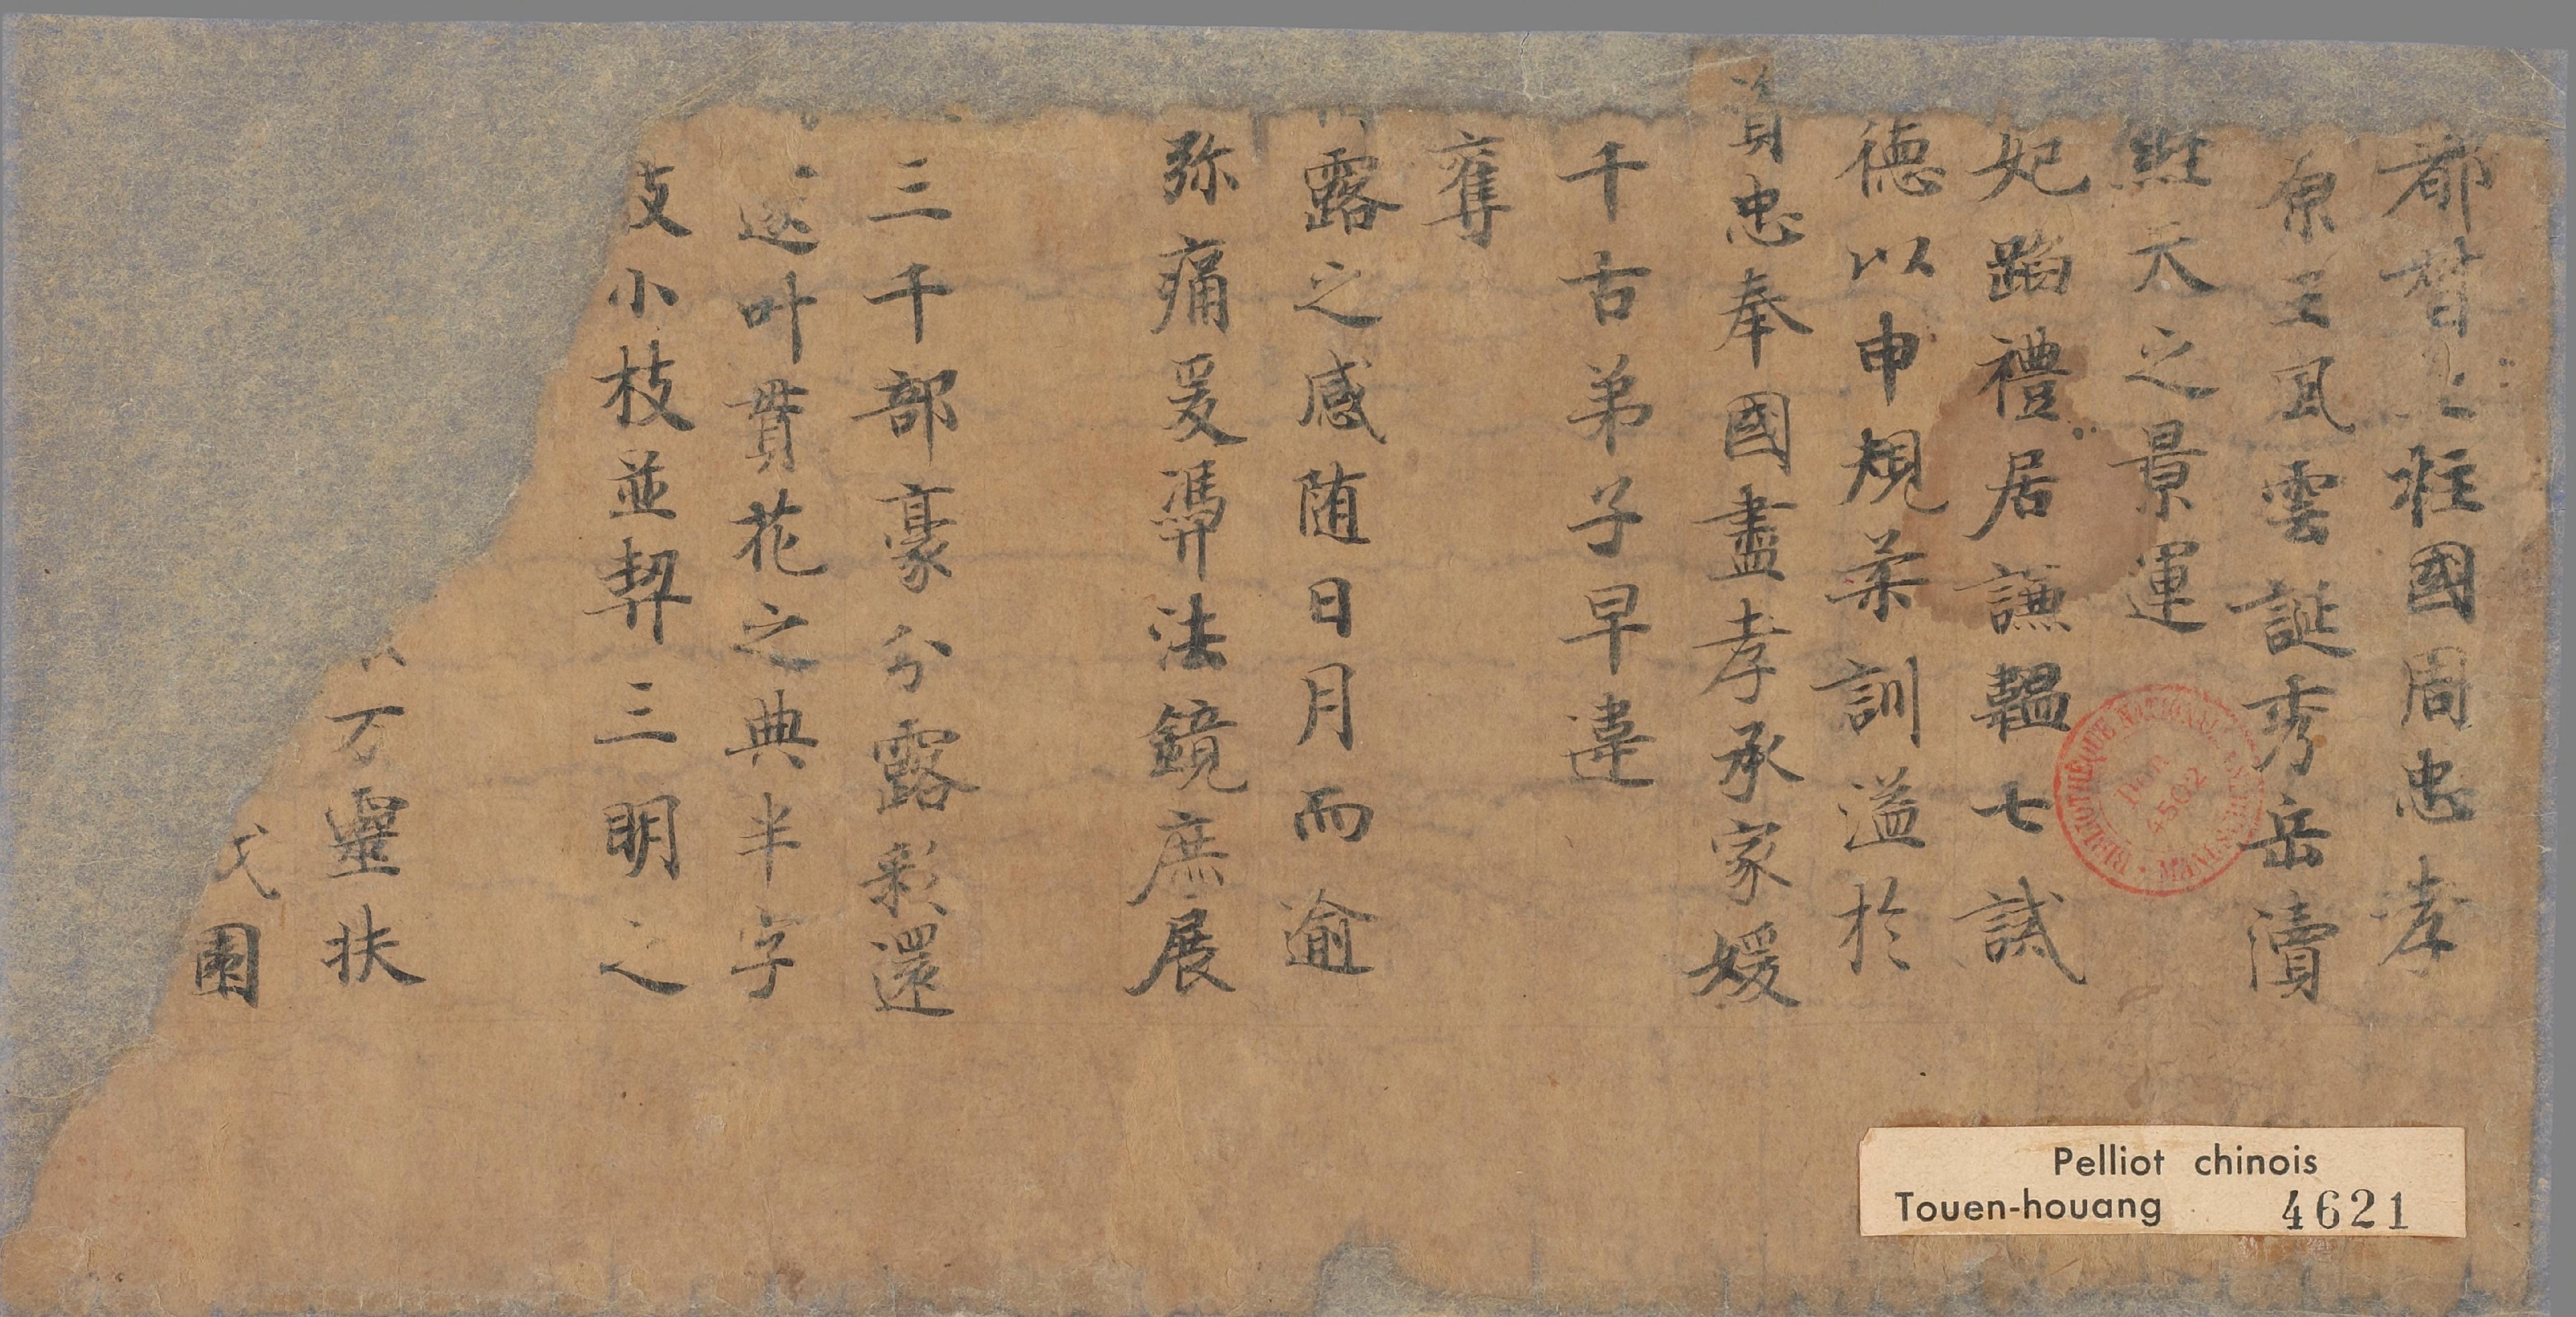 都督上柱國周忠孝
原王風雲誕秀岳瀆
經天之景運
妃蹈禮居謙韞七誡
德以申規柔訓溢於
資忠奉國盡孝承家媛
千古弟子早違
奪
露之感随日月而逾
弥痛爰馮法鏡庶展
三千部豪分露彩還
遂叶貫花之典半字
枝小枝並契三明之
万靈扶
園
Pelliot chinois
Touen-houang 4621